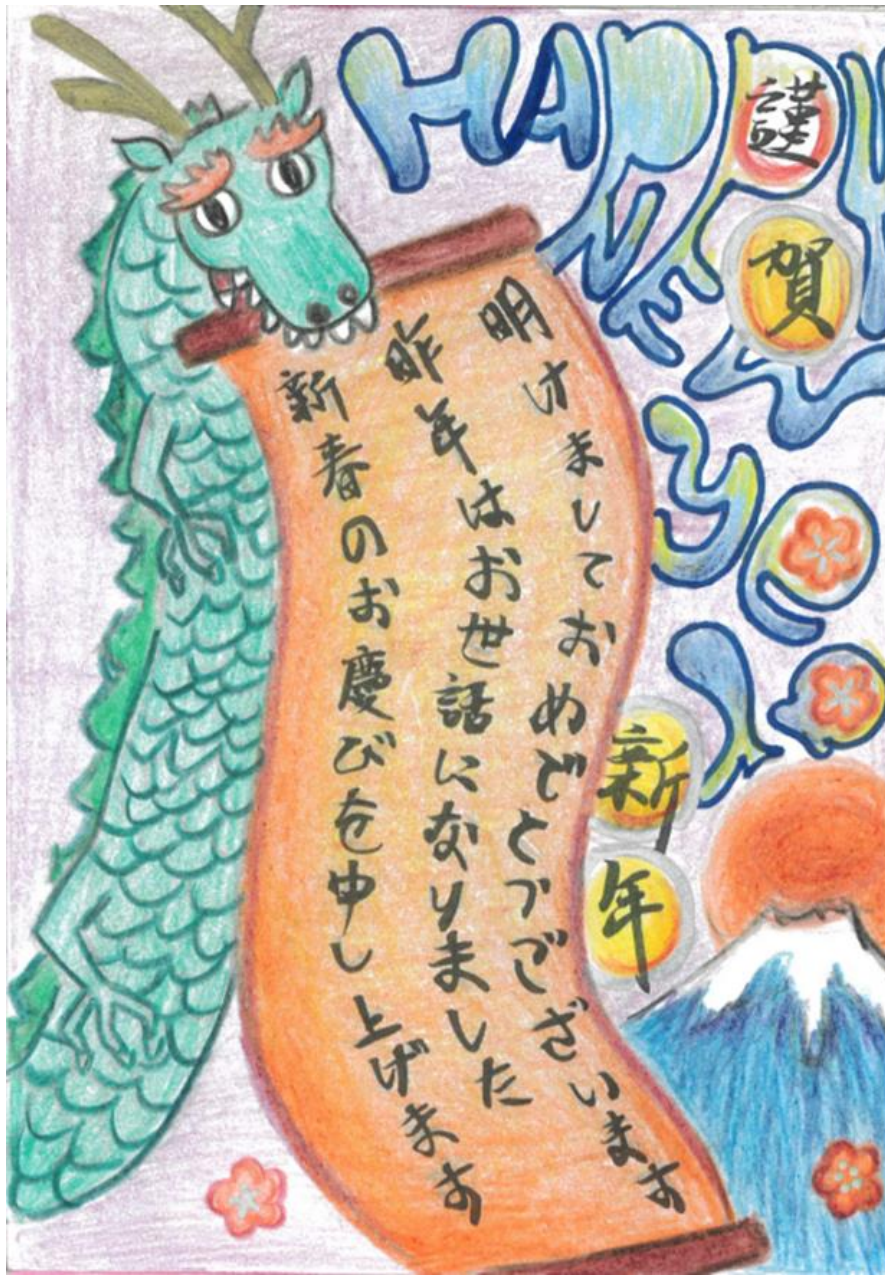 HAPPY
NEW
yea
謹
賀
新
年
明けましておめでとうございます
昨年はお世話になりました
新春のお慶びを申し上げます